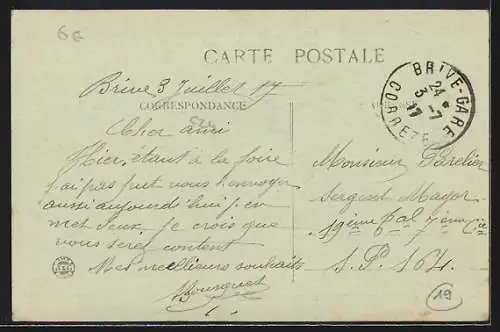 6€
CARTE POSTALE
Brive 3 Juillet 17
CORRESPONDANCE
524
BRIVE-GARE
24
3 -7
17
CORREZE
Cher ami
Hier, étant à la foire
j'ai pas put vous l'envoyer
aussi aujourd'hui j'en
met deux. Je crois que
vous seret content
Mes meilleurs souhaits
Monsieur
Sergent Major
19ème 7ème Cie
S.P. 164.
19